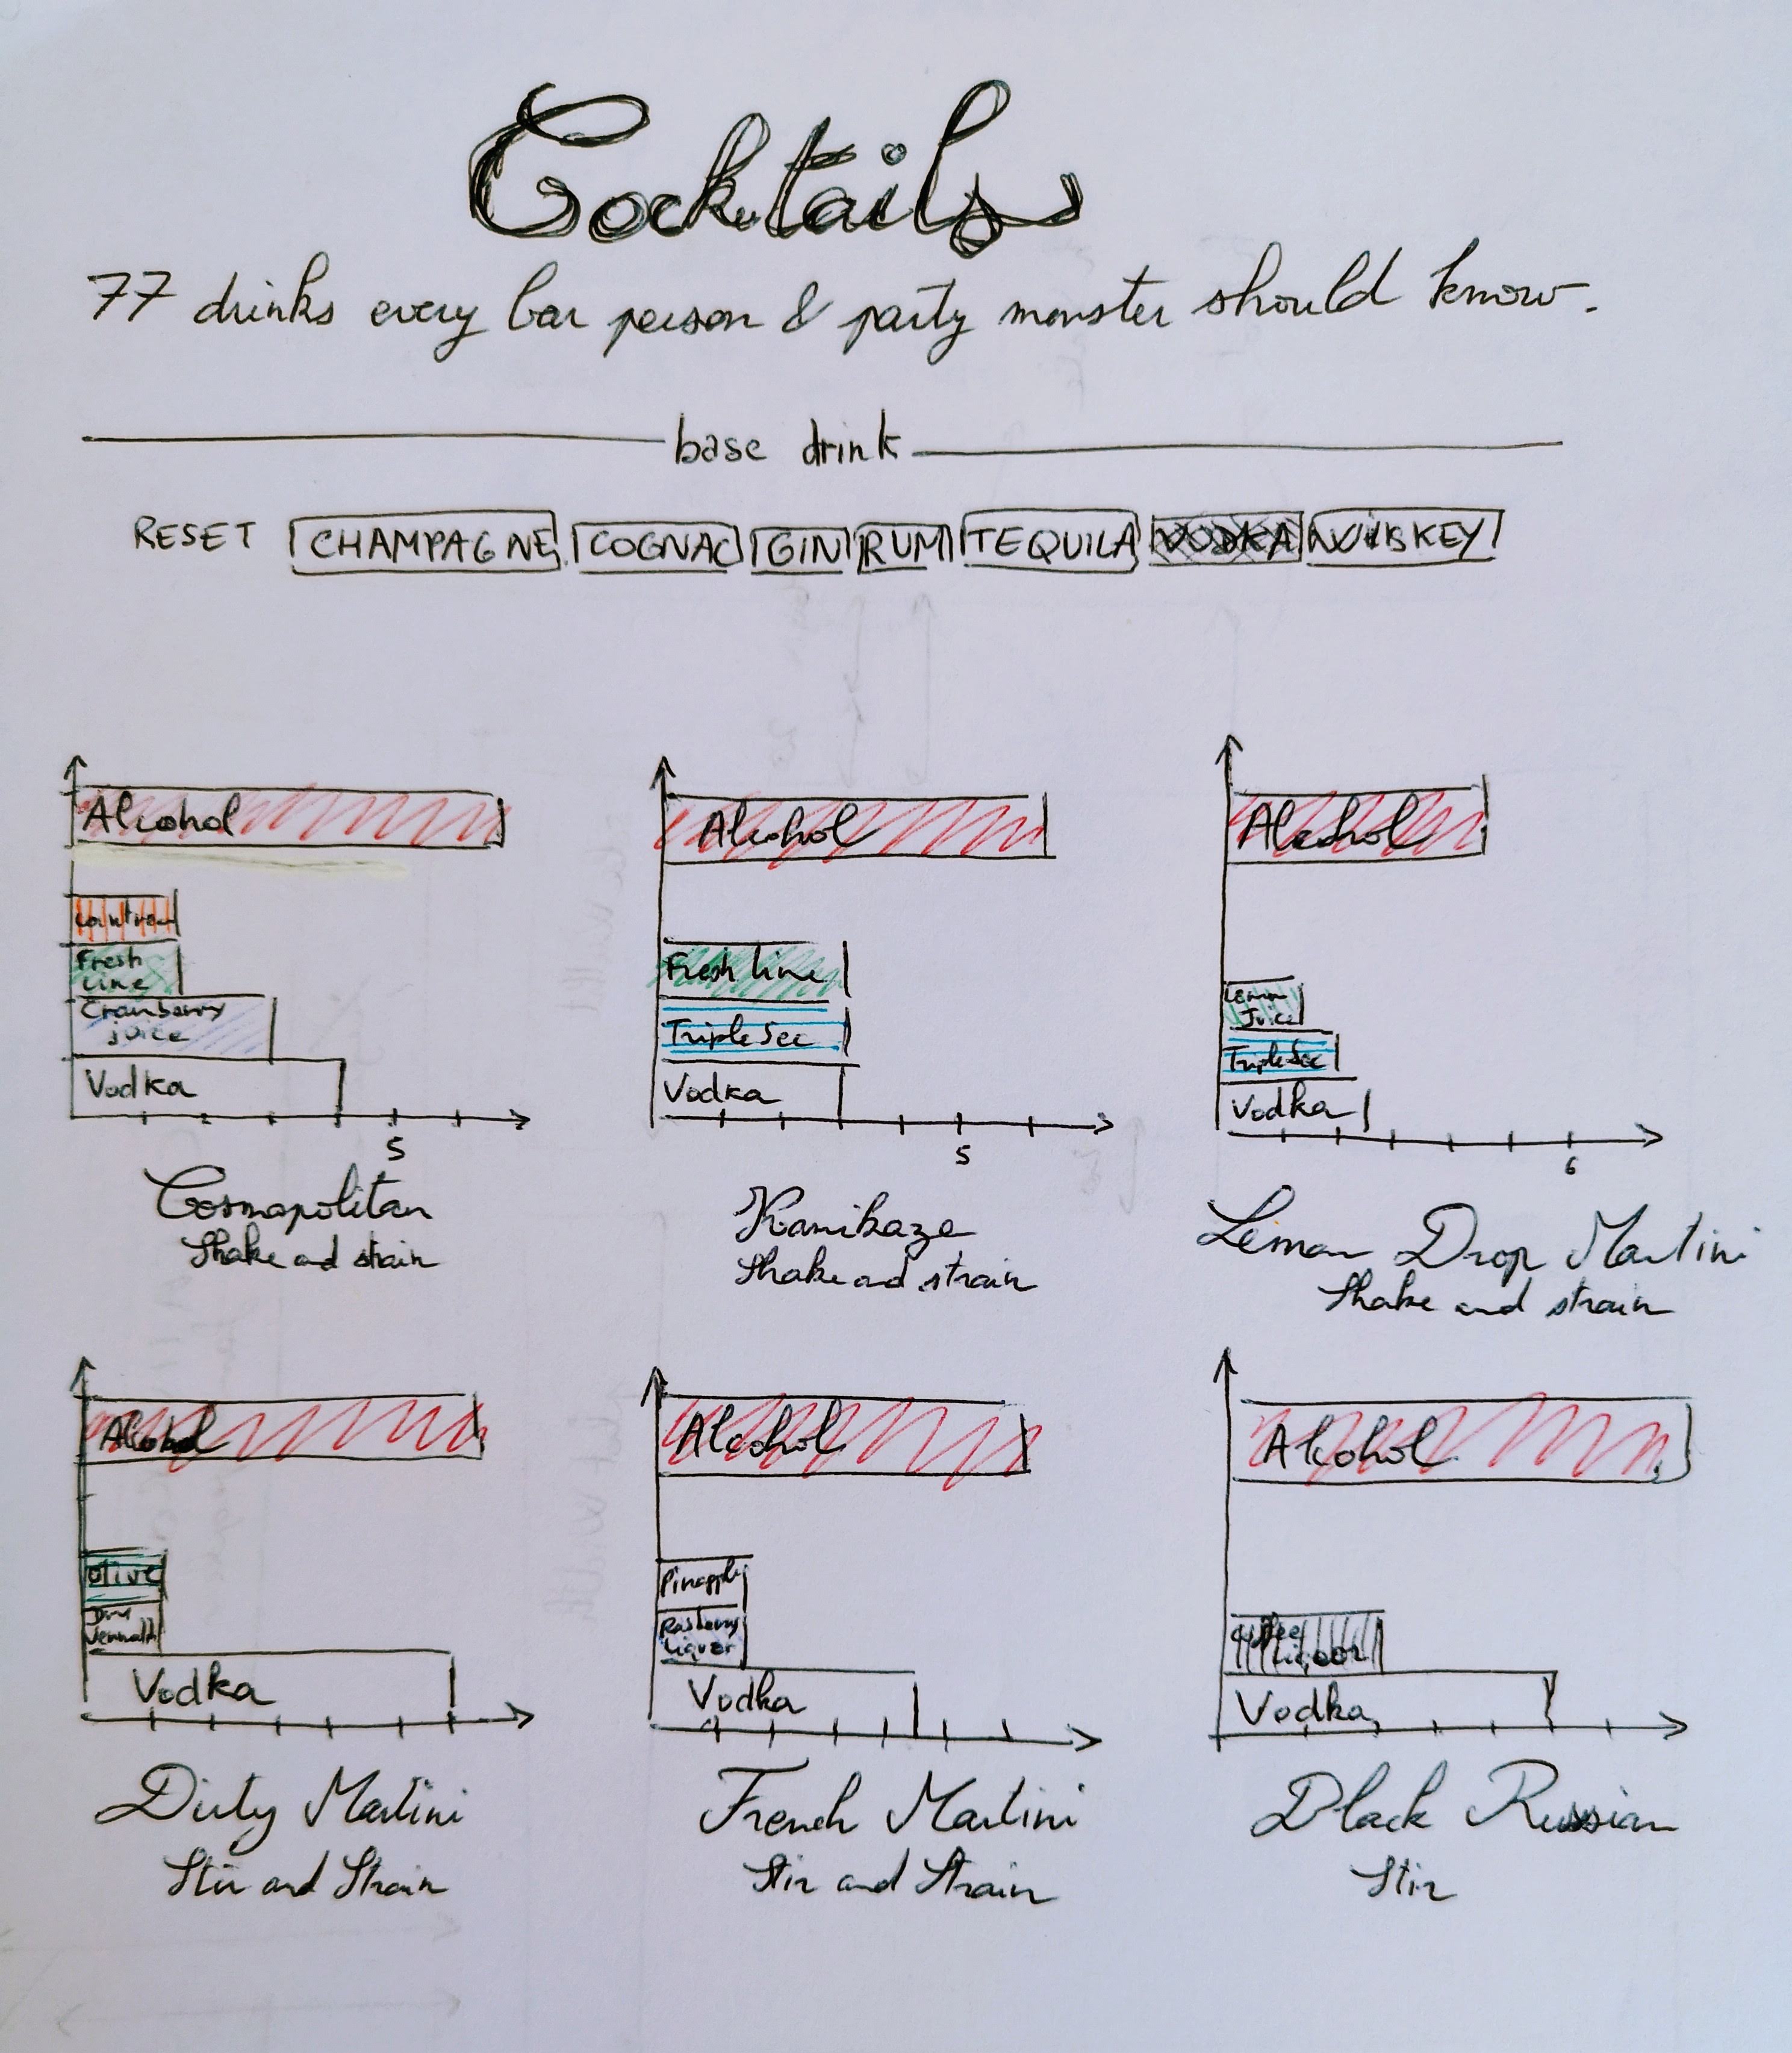 Cocktails
77 drinks every bar person & party monster should know.
base drink
RESET CHAMPAGNE COGNAC GIN RUM TEQUILA VODKA WHISKEY
Alcohol
Fresh
Line
Cranberry
juice
Vodka
5
Cosmopolitan
Shake and strain
Alcohol
Fresh line
Triple Sec
Vodka
5
Kamikaze
Shake and strain
Alcohol
Lemon
Juice
Triple Sec
Vodka
6
Lemon Drop Martini
Shake and strain
Alcohol
Olive
Dry
Vodka
Dirty Martini
Stir and Strain
Alcohol
Pineapple
Liquor
Vodka
French Martini
Stir and Strain
Alcohol
Coffee
Liquor
Vodka
Black Russian
Stir